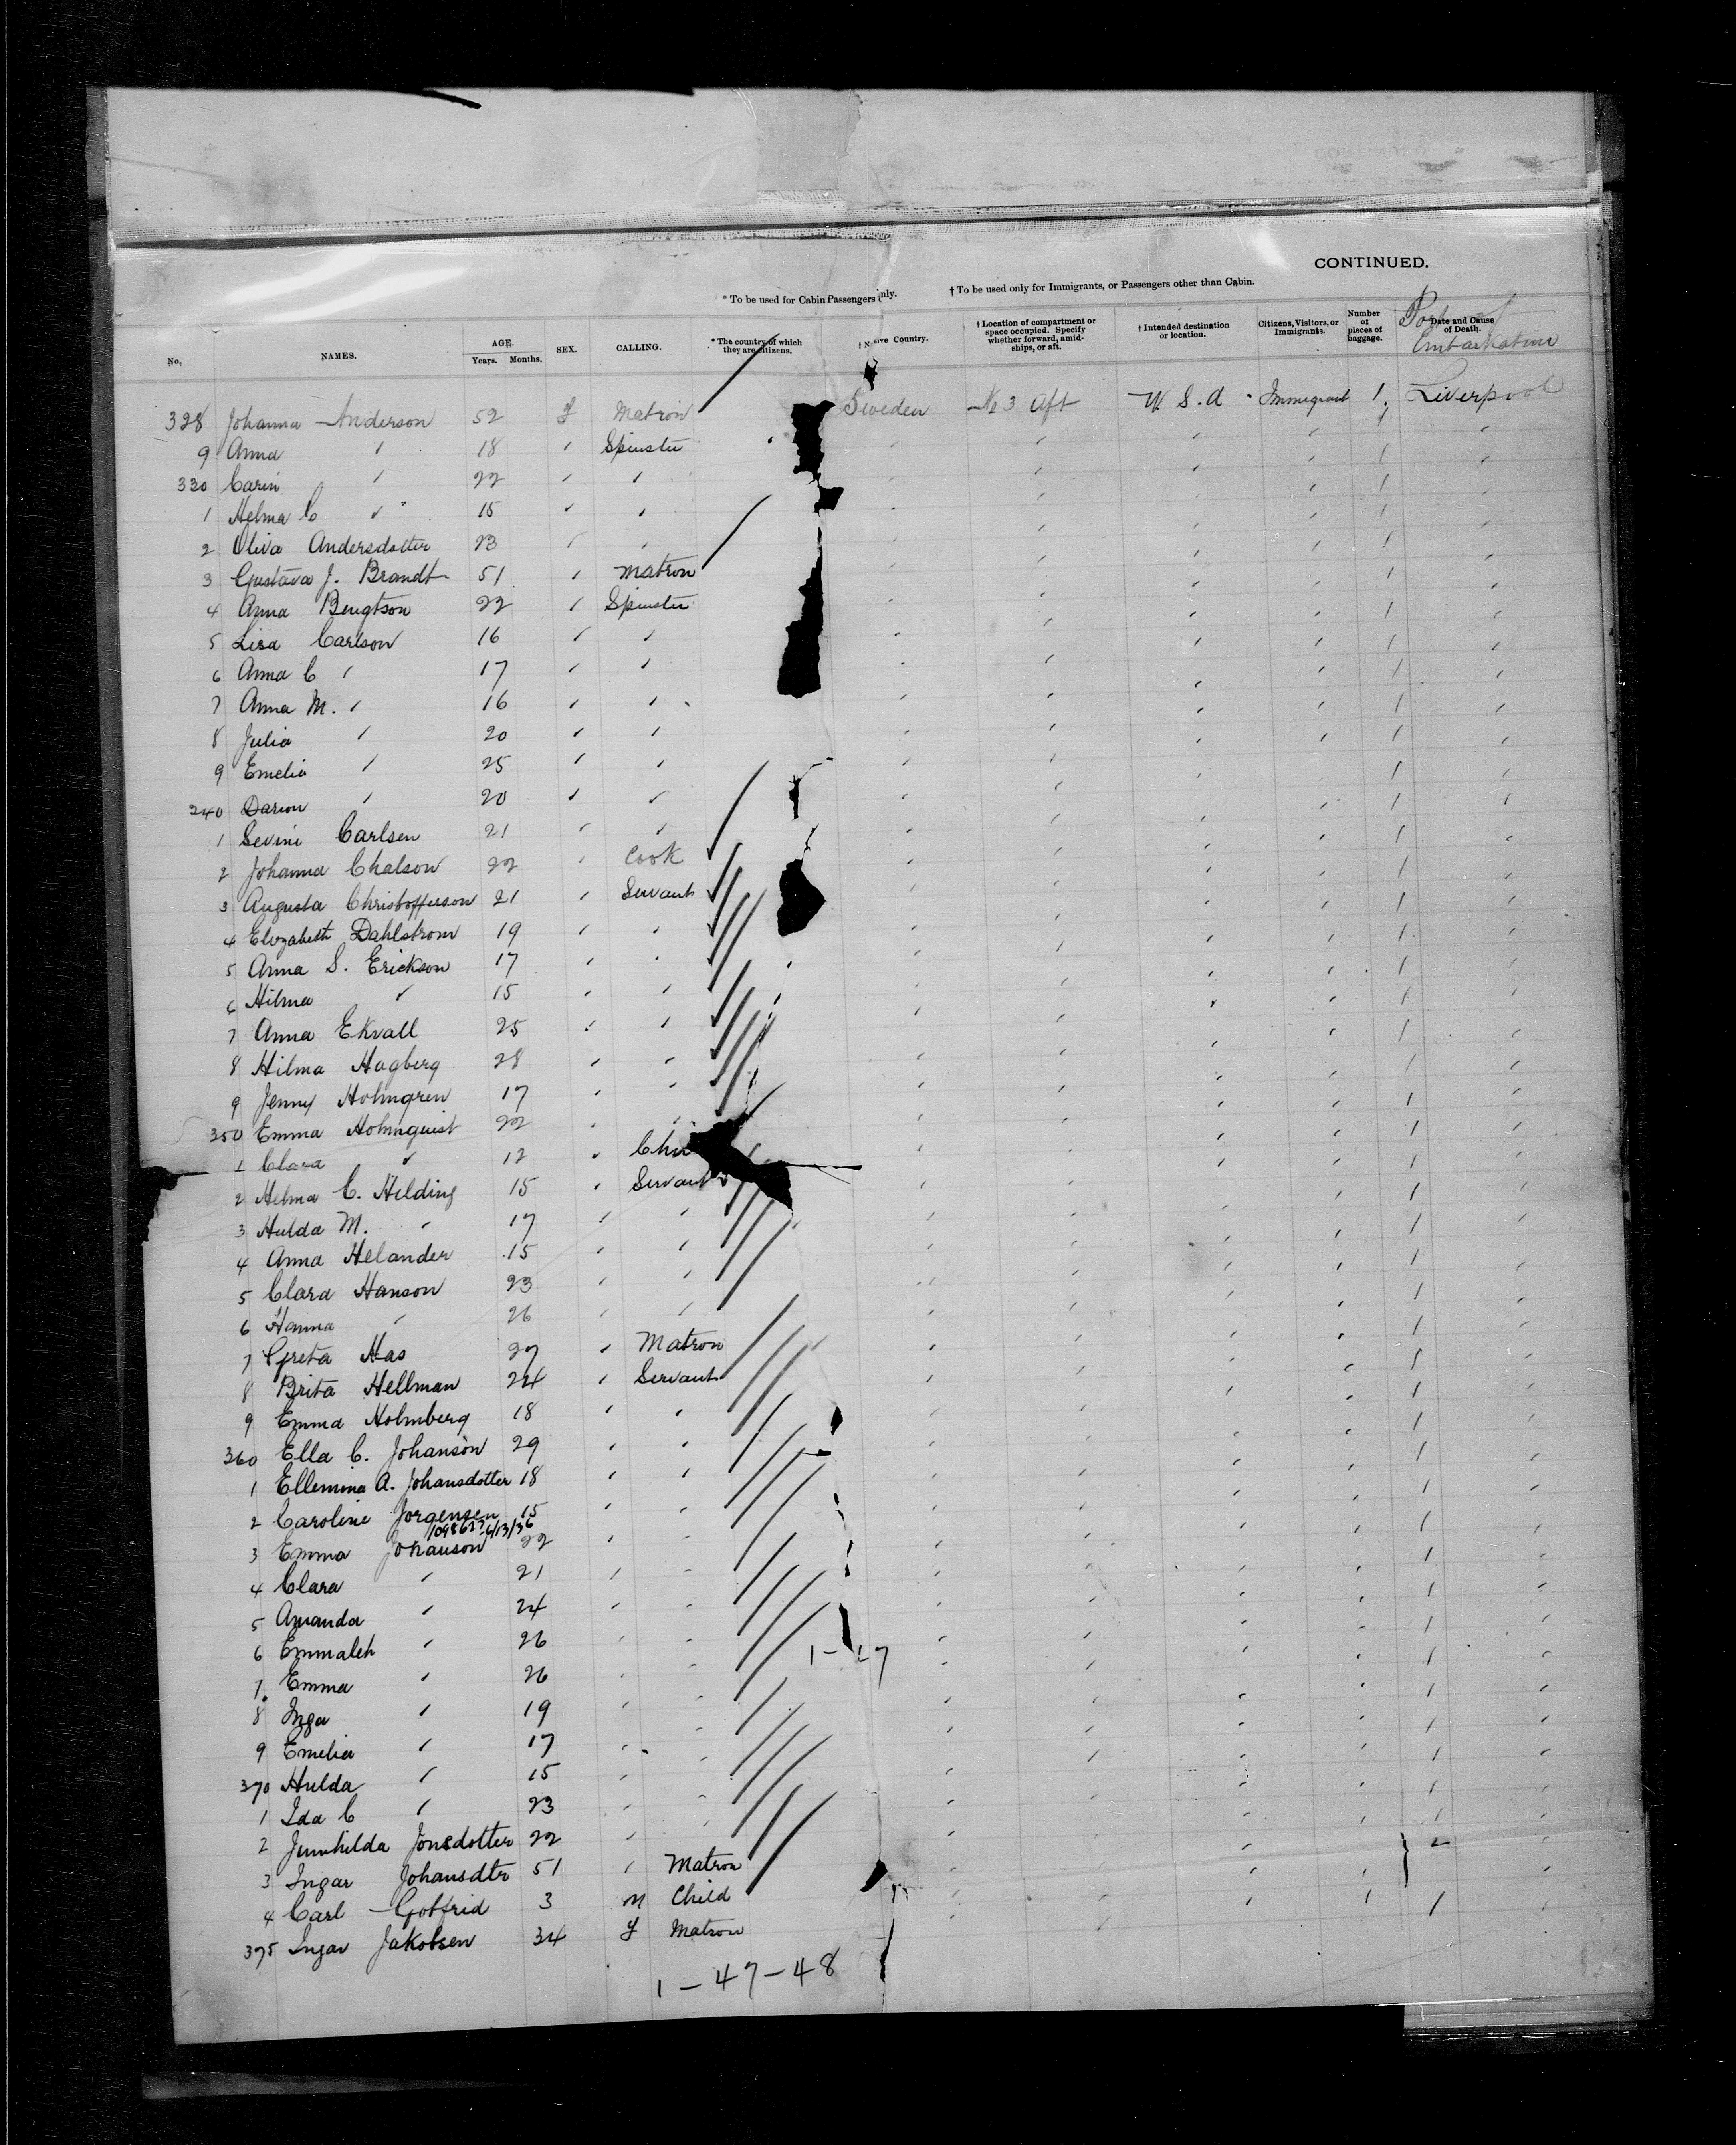 CONTINUED.
* To be used for Cabin Passengers only. † To be used only for Immigrants, or Passengers other than Cabin.
No. NAMES. AGE. Years. Months. SEX. CALLING. * The country of which they are citizens. † Native Country. † Location of compartment or space occupied. Specify whether forward, amidships, or aft. † Intended destination or location. Citizens, Visitors, or Immigrants. Number of pieces of baggage. Date and Cause of Death. Port of Embarkation
328 Johanna Anderson 52 f Matron Sweden No 3 Aft U.S.A. Immigrant 1 Liverpool
9 Anna " 18 " Spinster " " " " 1 "
330 Carin " 22 " " " " " " 1 "
1 Helma C " 15 " " " " " " 1 "
2 Oliva Andersdotter 23 " " " " " " 1 "
3 Gustava J. Brandt 51 " Matron " " " " 1 "
4 Anna Bengtson 22 " Spinster " " " " 1 "
5 Lisa Carlson 16 " " " " " " 1 "
6 Anna C " 17 " " " " " " 1 "
7 Anna M. " 16 " " " " " " 1 "
8 Julia " 20 " " " " " " 1 "
9 Emelia " 25 " " " " " " 1 "
240 " 20 " " " " " " 1 "
1 Carlsen 21 " " " " " " 1 "
2 Johanna Chalson 22 " Cook " " " " 1 "
3 Augusta Christofferson 21 " Servant " " " " 1 "
4 Elizabeth Dahlstrom 19 " " " " " " 1 "
5 Anna S. Erickson 17 " " " " " " 1 "
6 Hilma " 15 " " " " " " 1 "
7 Anna Ekvall 25 " " " " " " 1 "
8 Hilma Hagberg 28 " " " " " " 1 "
9 Jenny Holmgren 17 " " " " " " 1 "
350 Emma Holmquist 22 " " " " " " 1 "
1 Clara " 12 " " " " " 1 "
2 Helma C. Helding 15 " Servant " " " " 1 "
3 Hulda M. " 17 " " " " " " 1 "
4 Anna Helander 15 " " " " " " 1 "
5 Clara Hanson 23 " " " " " " 1 "
6 Hanna " 26 " " " " " " 1 "
7 Greta Has 27 " Matron " " " " 1 "
8 Brita Hellman 24 " Servant " " " " 1 "
9 Emma Holmberg 18 " " " " " " 1 "
360 Ella C. Johanson 29 " " " " " " 1 "
1 Ellemina A. Johansdotter 18 " " " " " " 1 "
2 Caroline Jorgensen 15 " " " " " " 1 "
3 Emma Johanson 22 " " " " " " 1 "
4 Clara " 21 " " " " " " 1 "
5 Amanda " 24 " " " " " " 1 "
6 Emmaleh " 26 " " " " " " 1 "
7 Emma " 26 " " " " " " 1 "
8 Inga " 19 " " " " " " 1 "
9 Emelia " 17 " " " " " " 1 "
370 Hulda " 15 " " " " " " 1 "
1 Ida C " 23 " " " " " " 1 "
2 Jonsdotter 22 " " " " " " 1 "
3 Ingar Johansdtr 51 " Matron " " " " 2 "
4 Carl Gotfrid 3 m Child " " " "
375 Ingar Jakobsen 34 f Matron " " " " 1 "
1-47-48